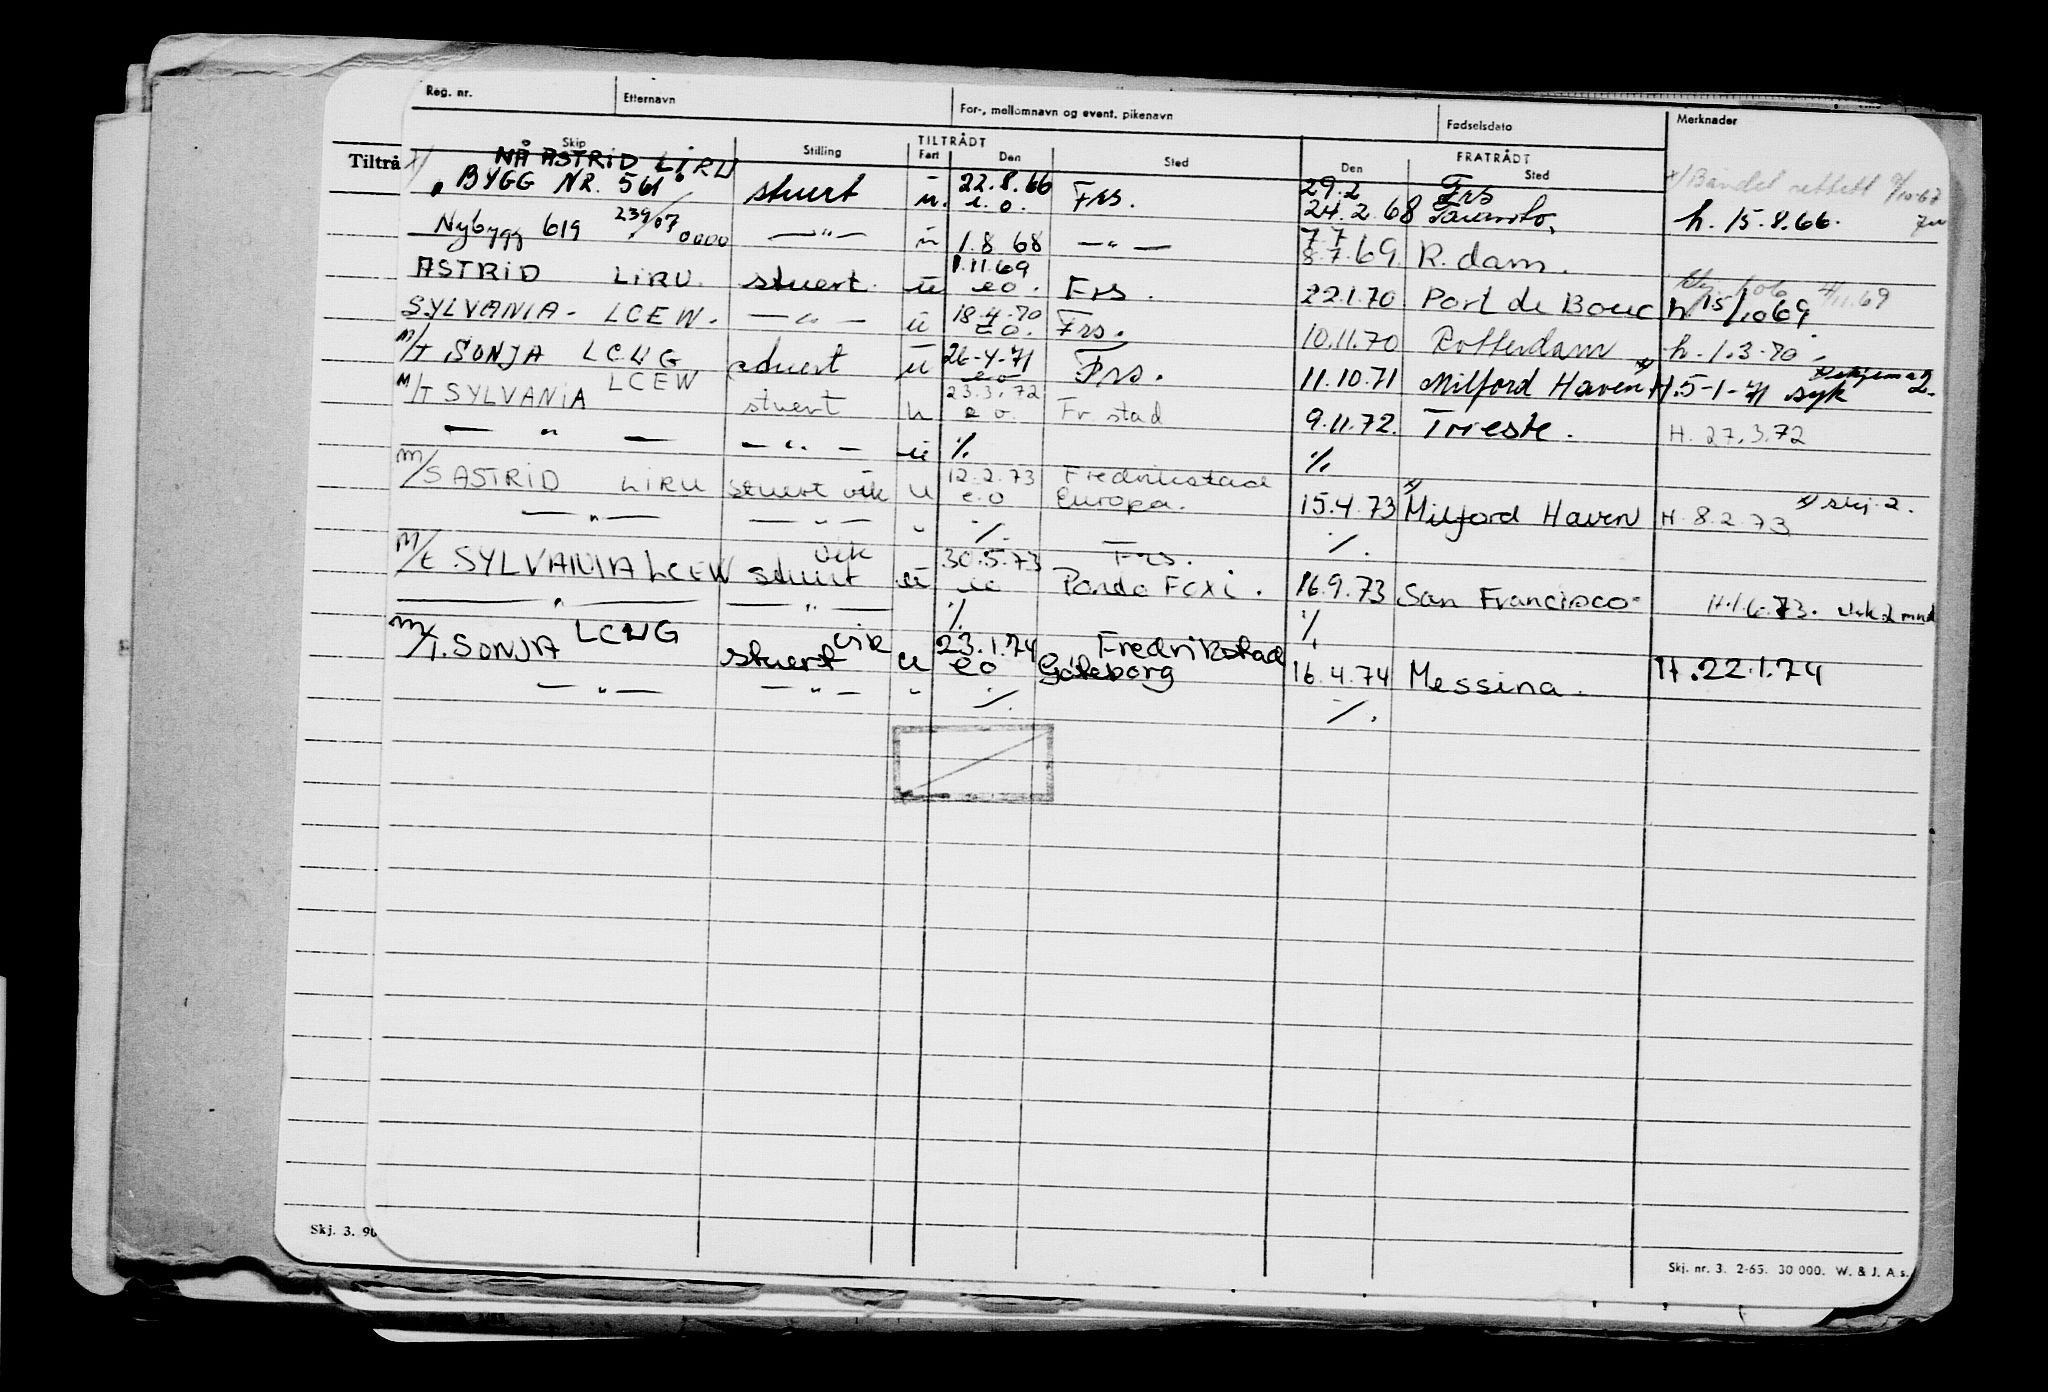 Reg. nr. Etternavn For-, mellomnavn og event. pikenavn Fødselsdato Merknader
Skip Stilling TILTRÅDT Fart Den Sted FRATRÅDT Den Sted
Tiltrå
x/ NÅ ASTRID LIRU 22.8.66 29.2 Frs x/ Bandel rettett
" BYGG NR. 561 " stuert u. e.o. Frs. 24.2.68 h. 15.8.66.
Nybygg 619 239/07 0000 — " — u 1.8 68 — " — 7.7 8.7.69. R.dam.
ASTRID LIRU. stuert. u 1.11.69 eo. Frs. 22.1.70 Port de Bouc h. 15/10 69 4/11.69
SYLVANIA - LCEW. — " — u 18.4.70 e.o. Frs. 10.11.70 Rotterdam h. 1.3.70.
M/T SONJA LCWG stuert u 26-4-71 e.o Frs. 11.10.71 Milford Haven x) H.5-1-71 syk x) skjema 2.
M/T SYLVANIA LCEW stuert u 23.3.72 e o. Fr.stad 9.11.72. Trieste. H. 27.3.72
— " — — " — u % %
M/S ASTRID LIRU stuert vik u 12.2.73 e.o Fredrikstad Europa. 15.4.73 x) Milford Haven H. 8.2.73 x) skj. 2.
— " — — " — " %. %.
M/t. SYLVANIA LCEW stuert vik u 30.5.73 eo Frs. 16.9.73 San Francisco H.1.6.73. vik 2 mnd
— " — — " — % %
M/T. SONJA LCWG stuert vik u 23.1.74 eo Fredrikstad Göteborg 16.4.74 Messina. H. 22.1.74
— " — — " — " %. %.
Skj. 3. 90
Skj. nr. 3. 2-65. 30 000. W. & J. A.s.